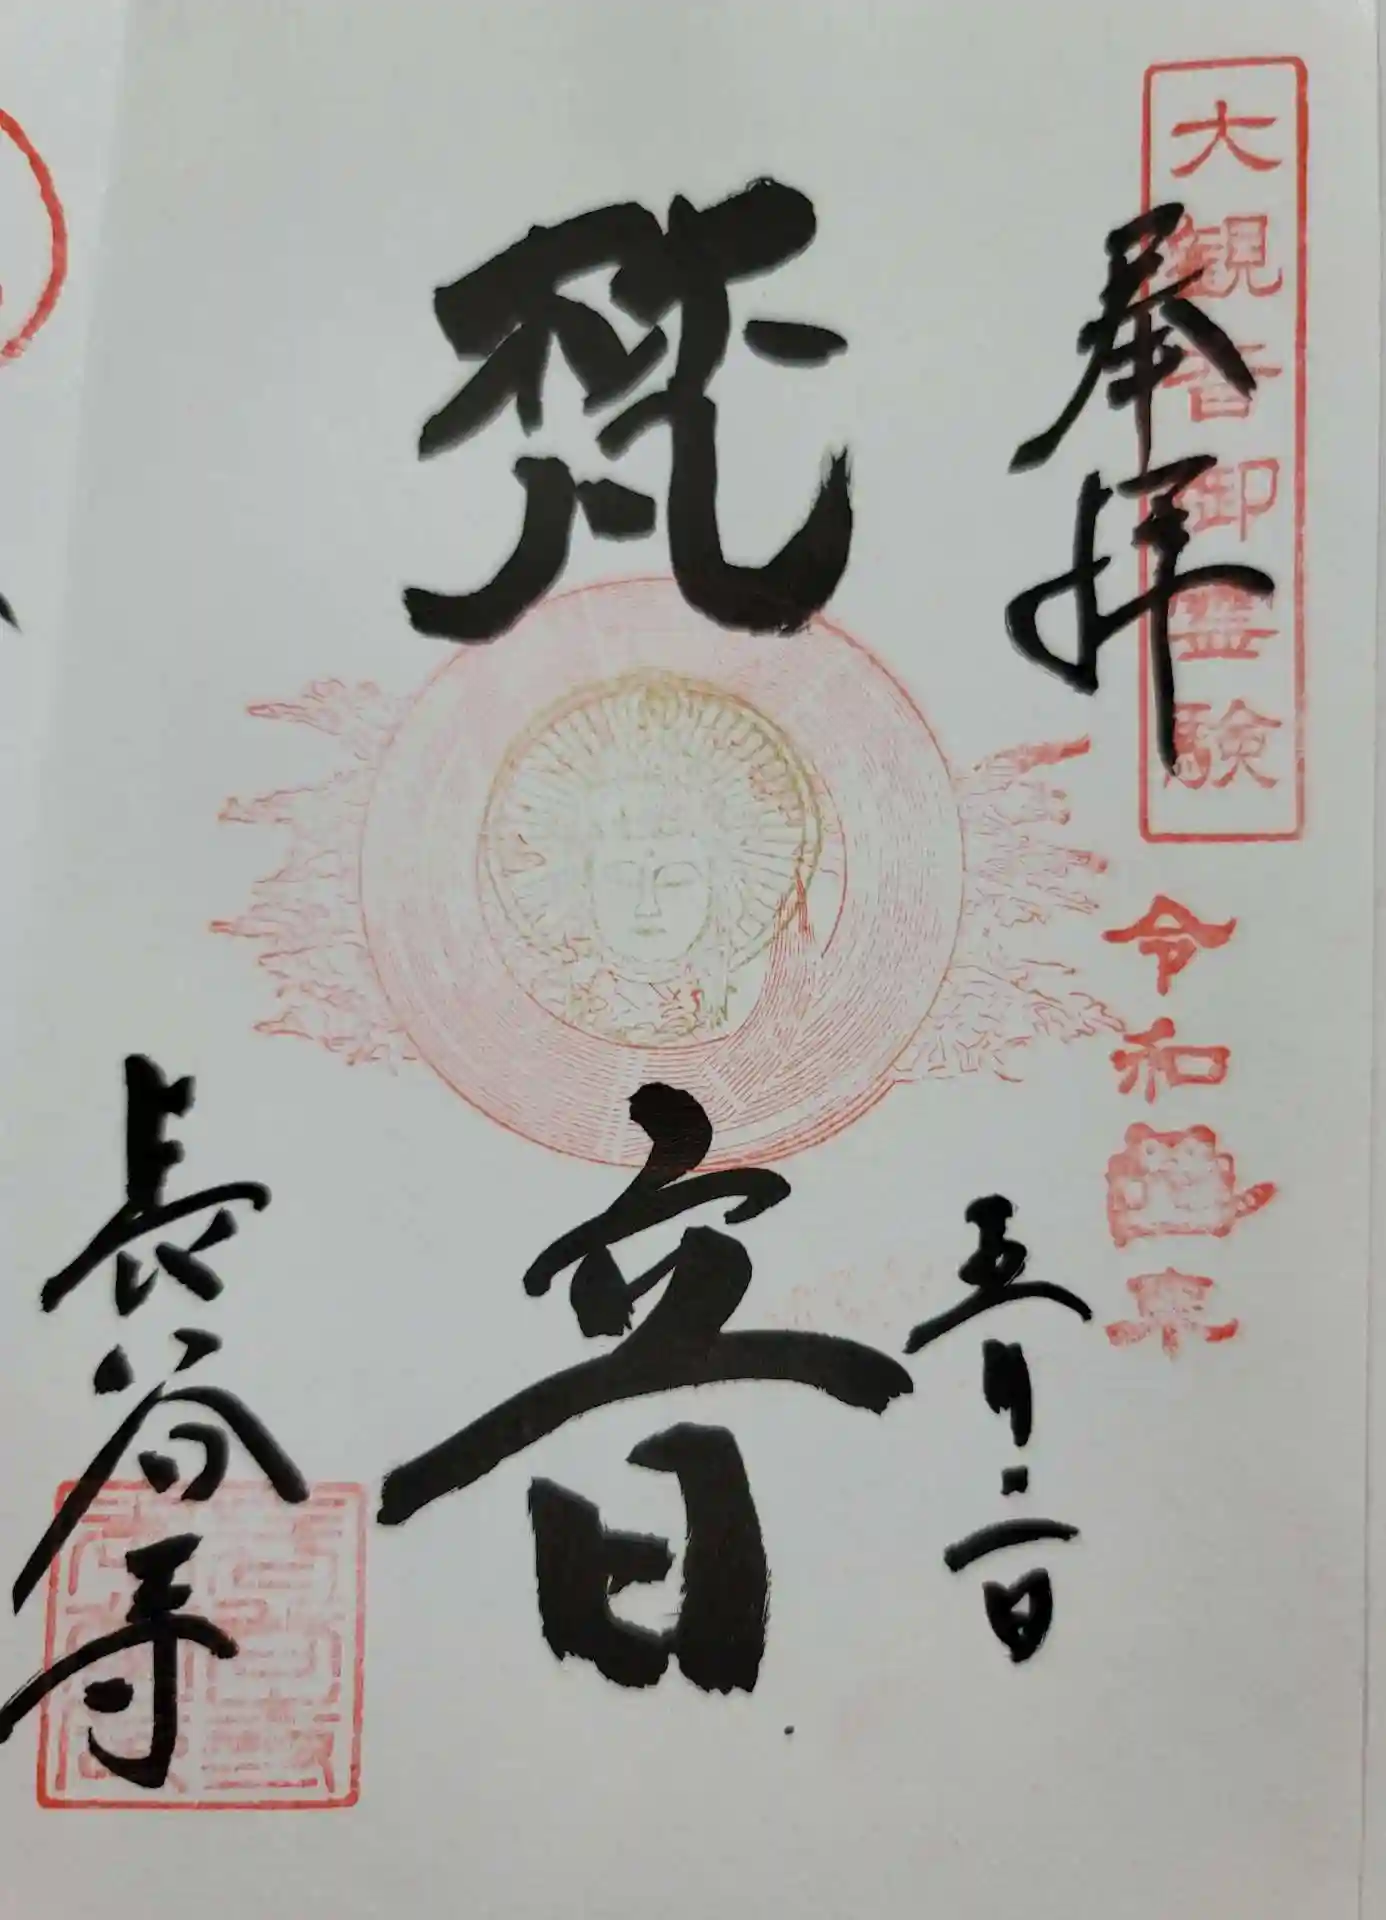 大観音御霊験
奉拝
令和四年
五月二日
梵音
長谷寺